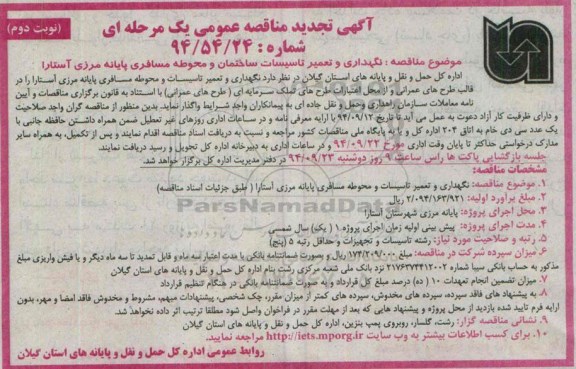 آگهی تجدید مناقصه عمومی یک مرحله ای
(نوبت دوم)
شماره : ۹۴/۵۴/۲۴
موضوع مناقصه : نگهداری و تعمیر تاسیسات ساختمان و محوطه مسافری پایانه مرزی آستارا
اداره کل حمل و نقل و پایانه های استان گیلان در نظر دارد نگهداری و تعمیر تاسیسات و محوطه مسافری پایانه مرزی آستارا را در
قالب طرح های عمرانی و از محل اعتبارات طرح های تملک سرمایه ای ( طرح های عمرانی) با استناد به قانون برگزاری مناقصات و آیین
نامه معاملات سازمان راهداری و حمل و نقل جاده ای به پیمانکاران واجد شرایط واگذار نماید. بدین منظور از مناقصه گران واجد صلاحیت
و دارای ظرفیت کار آزاد دعوت به عمل می آید تا تاریخ ۹۴/۰۹/۱۲ با ارایه معرفی نامه و در ساعات اداری روزهای غیر تعطیل ضمن همراه داشتن حافظه جانبی یا
یک عدد سی دی خام به اتاق ۲۰۴ اداره کل و یا به پایگاه ملی مناقصات کشور مراجعه و نسبت به دریافت اسناد مناقصه اقدام نمایند و پس از تکمیل، به همراه سایر
مدارک درخواستی حداکثر تا پایان وقت اداری مورخ ۹۴/۰۹/۲۲ و در ساعات اداری به دبیرخانه اداره کل تحویل و رسید دریافت نمایند.
جلسه بازگشایی پاکت ها راس ساعت ۹ روز دوشنبه ۹۴/۰۹/۲۳ در دفتر مدیریت اداره کل برگزار خواهد شد.
مشخصات مناقصه:
۱. موضوع مناقصه: نگهداری و تعمیر تاسیسات و محوطه مسافری پایانه مرزی آستارا ( طبق جزئیات اسناد مناقصه)
۲. مبلغ برآورد اولیه: ۲/۰۹۴/۱۶۳/۹۲۱ ریال
ParsNamadData
۳. محل اجرای پروژه: پایانه مرزی شهرستان آستارا
۴. مدت اجرای پروژه: پیش بینی اولیه زمان اجرای پروژه ۱ ( یک) سال شمسی
۵. رتبه و صلاحیت مورد نیاز: رشته تاسیسات و تجهیزات و حداقل رتبه ۵ (پنج)
۶. میزان سپرده شرکت در مناقصه: مبلغ ۱۷۴/۲۰۹/۰۰۰ ریال و بصورت ضمانتنامه بانکی با مدت اعتبار سه ماه و قابل تمدید تا سه ماه دیگر و یا فیش واریزی مبلغ
مذکور به حساب بانکی سیبا شماره ۲۱۷۶۳۷۴۴۱۲۰۰۲ نزد بانک ملی شعبه مرکزی رشت بنام اداره کل حمل و نقل و پایانه های استان گیلان
۷. میزان تضمین انجام تعهدات ۱۰ (ده) درصد مبلغ کل قرارداد و به صورت ضمانتنامه بانکی در هنگام تنظیم قرارداد
۸. به پیشنهاد های فاقد سپرده، سپرده های مخدوش، سپرده های کمتر از میزان مقرر، چک شخصی، پیشنهادات مبهم، مشروط و مخدوش فاقد امضا و مهر، بدون
ارایه فرم تایید شده بازدید از محل پروژه و پیشنهاد هایی که بعد از مهلت مقرر در فراخوان واصل شود مطلقا ترتیب اثر داده نخواهد شد.
۹. نشانی مناقصه گزار: رشت، گلسار، روبروی پمپ بنزین، اداره کل حمل و نقل و پایانه های استان گیلان
۱۰. برای کسب اطلاعات بیشتر به وب سایت http://iets.mporg.ir مراجعه نمایید.
روابط عمومی اداره کل حمل و نقل و پایانه های استان گیلان